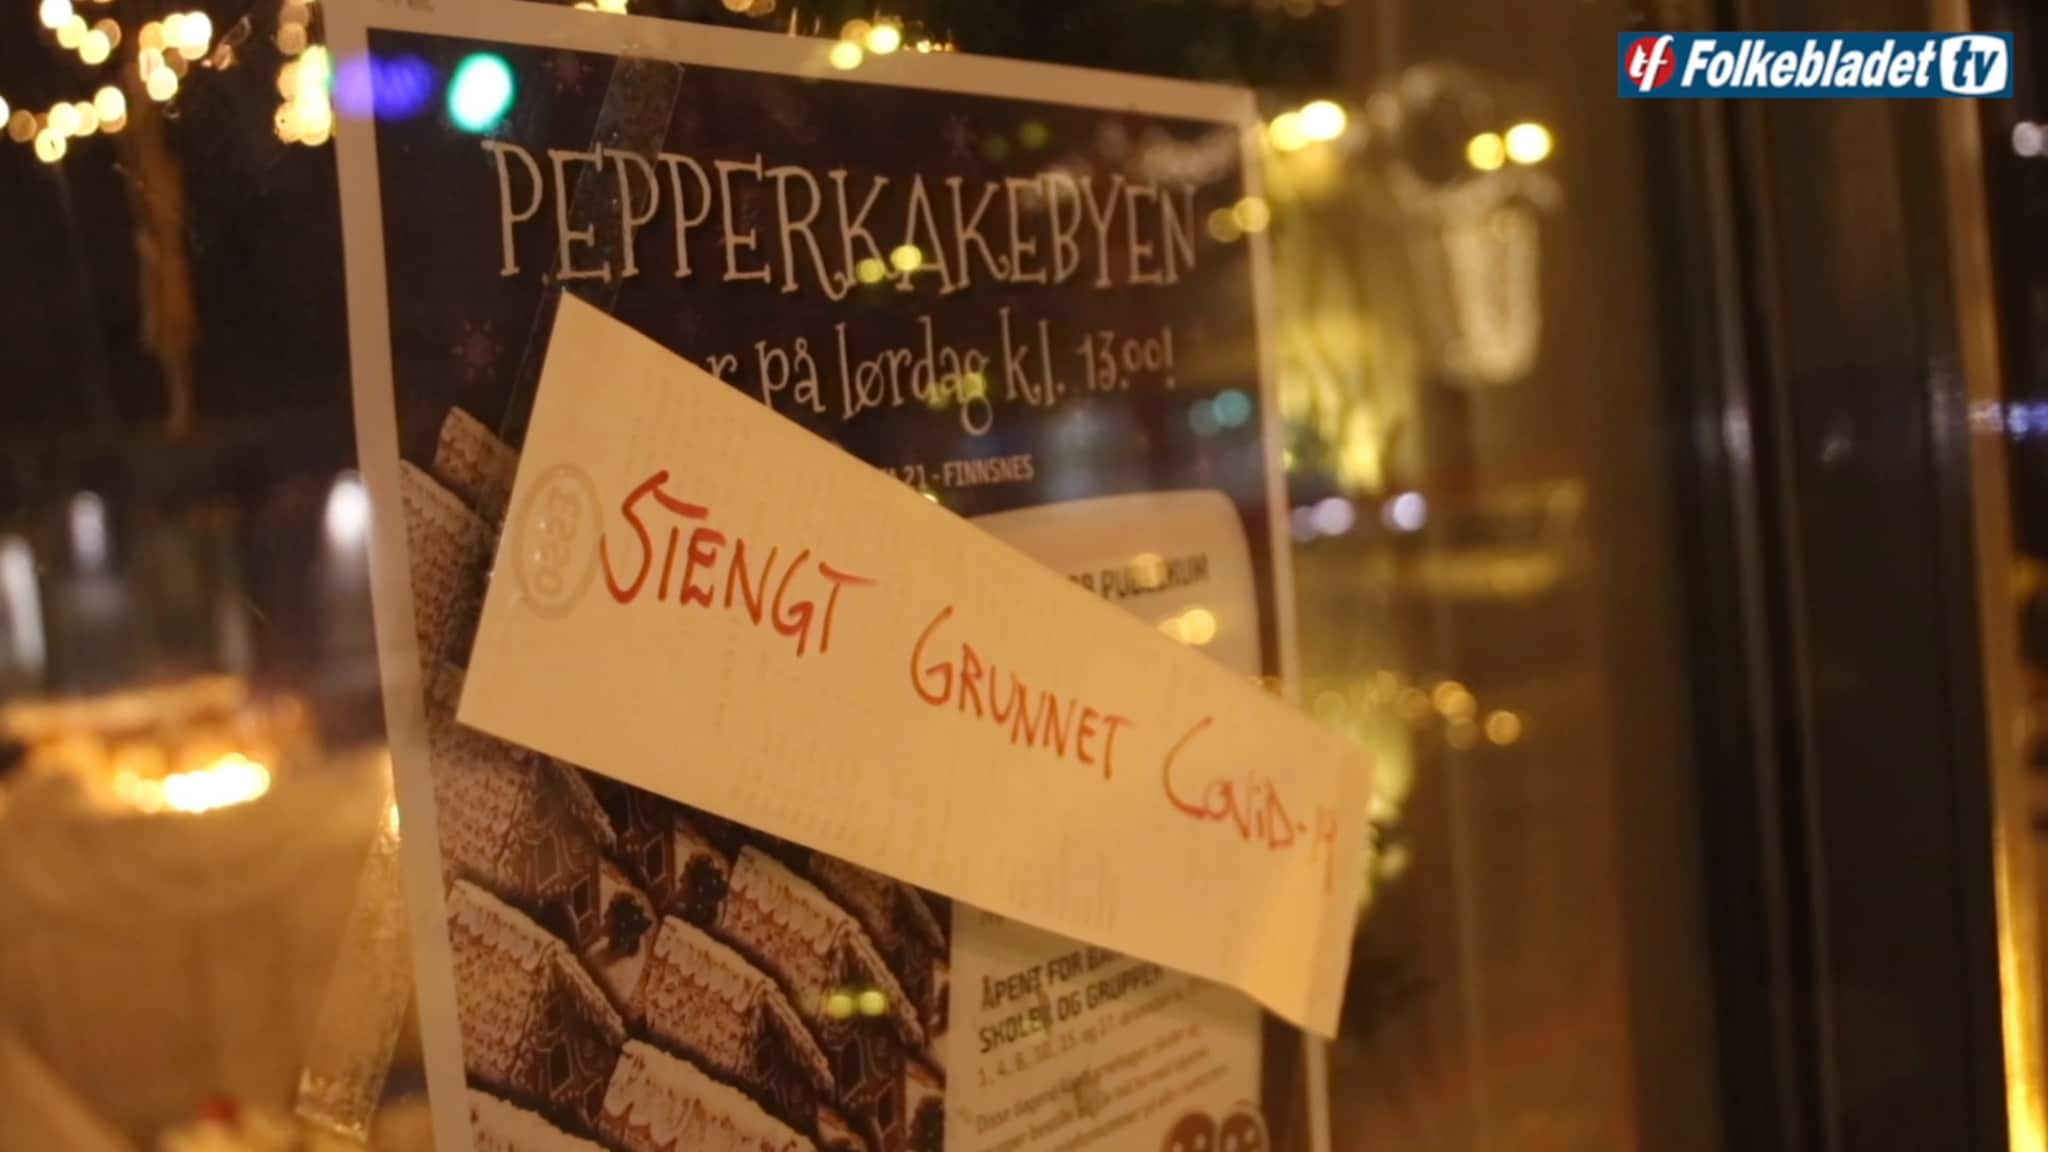 tf Folkebladet tv
PEPPERKAKEBYEN
på lørdag kl. 13.00!
21 - FINNSNES
PUBLIKUM
ESSO
STENGT GRUNNET COVID-19
ÅPENT FOR
SKOLER OG GRUPPER
1, 4, 8, 10, 15 og 17.